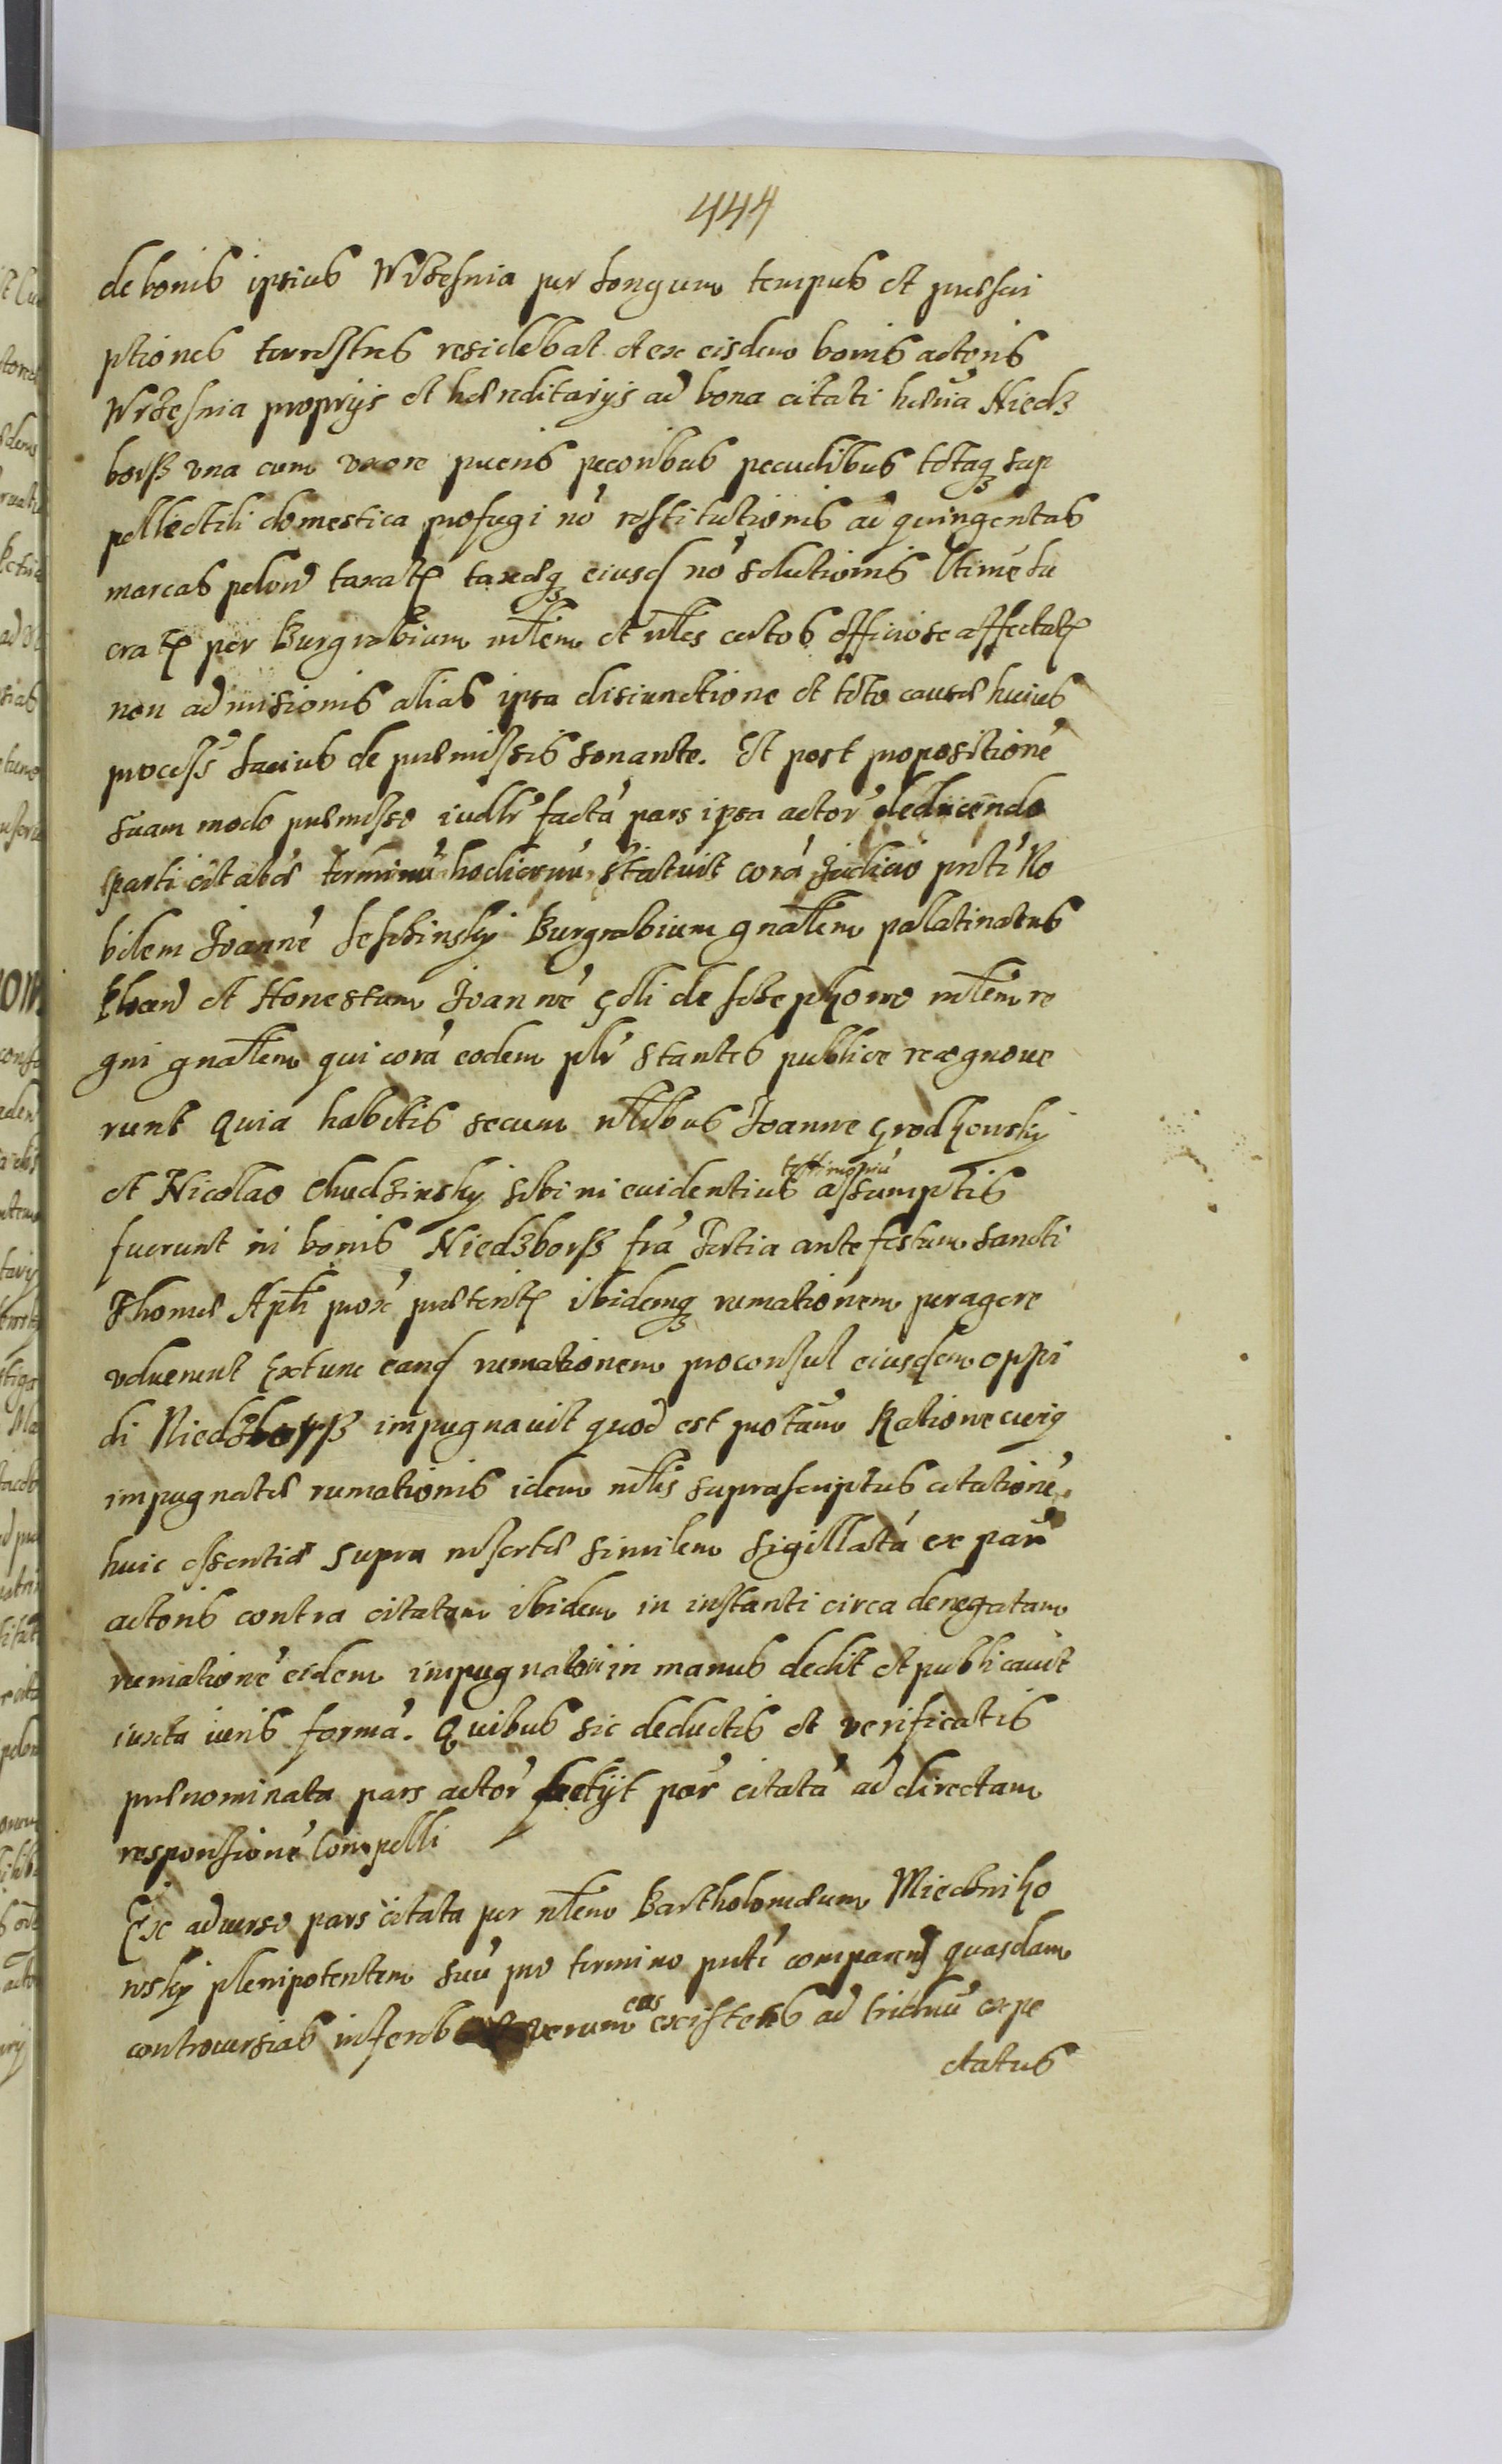 444
de bonis ipsius Wrzesnia per longum tempus et præscri
ptiones terrestres residebat et ex eisdem bonis actoris
Wrzesnia proprijs et hæreditarijs ad bona citati Niedz
borß una cum uxore pueris pecoribus pecudibus totaq; sup
pellectili domestica profugi nō restitutionis ad quingentas
marcas polon taxat taxæq; eiusd nō solutionis
per Burgrabium mlem et nles certos officiose affectat
non admisionis alias ipsa disiunctione et toto causæ huius
process lacius de præmissis sonante. Et post propositionē
suam modo præmisso iudlr factā pars ipsa actor deducendo
parti citatæ terminū hodiernū statuit corā Judicio pnti No
bilem Joannē Burgrabium gnalem pallatinatus
et Honestum Joannē de mlem re
gni gnalem qui corā eodem plr stantes publice recognove
runt Quia habitis secum nlibus Joanne Grodkowsky
et Nicolao Chudzinsky sibi in evidentius testimoniū assumptis
fuerunt in bonis Niedzborß fra Tertia ante festum sancti
Thomæ Apli prox præterit ibidemq; rumationem peragere
voluerunt Extunc eand rumationem proconsul eiusdem oppi
di Niedzborß impugnavit quod est protum Ratione cuius
impugnatæ rumationis idem mlis suprascriptus citationē
huic essentiæ supra insertæ similem sigillatā ex par
actoris contra citatam ibidem in instanti circa denegatam
rumationē eidem impugnatori in manus dedit et publicavit
iuxta iuris formā. Quibus sic deductis et verificatis
prænominata pars actor petijt par citatā ad directam
responsionē compelli
Ex adverso pars citata per nlem Bartholomæum Mieczniko
wsky plenipotentem suū pro termino pnti comparens quasdam
controversias inferens verum eas existens ad triduū expe
ctatus